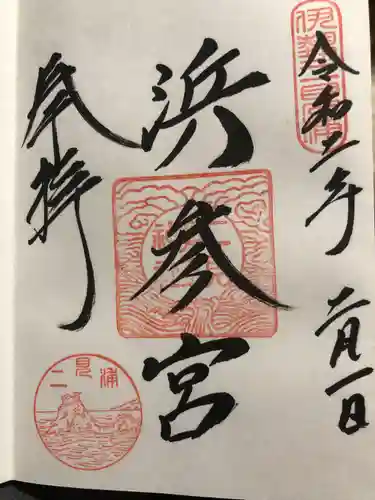 令和二年
二月一日
浜参宮
奉拝
二見浦